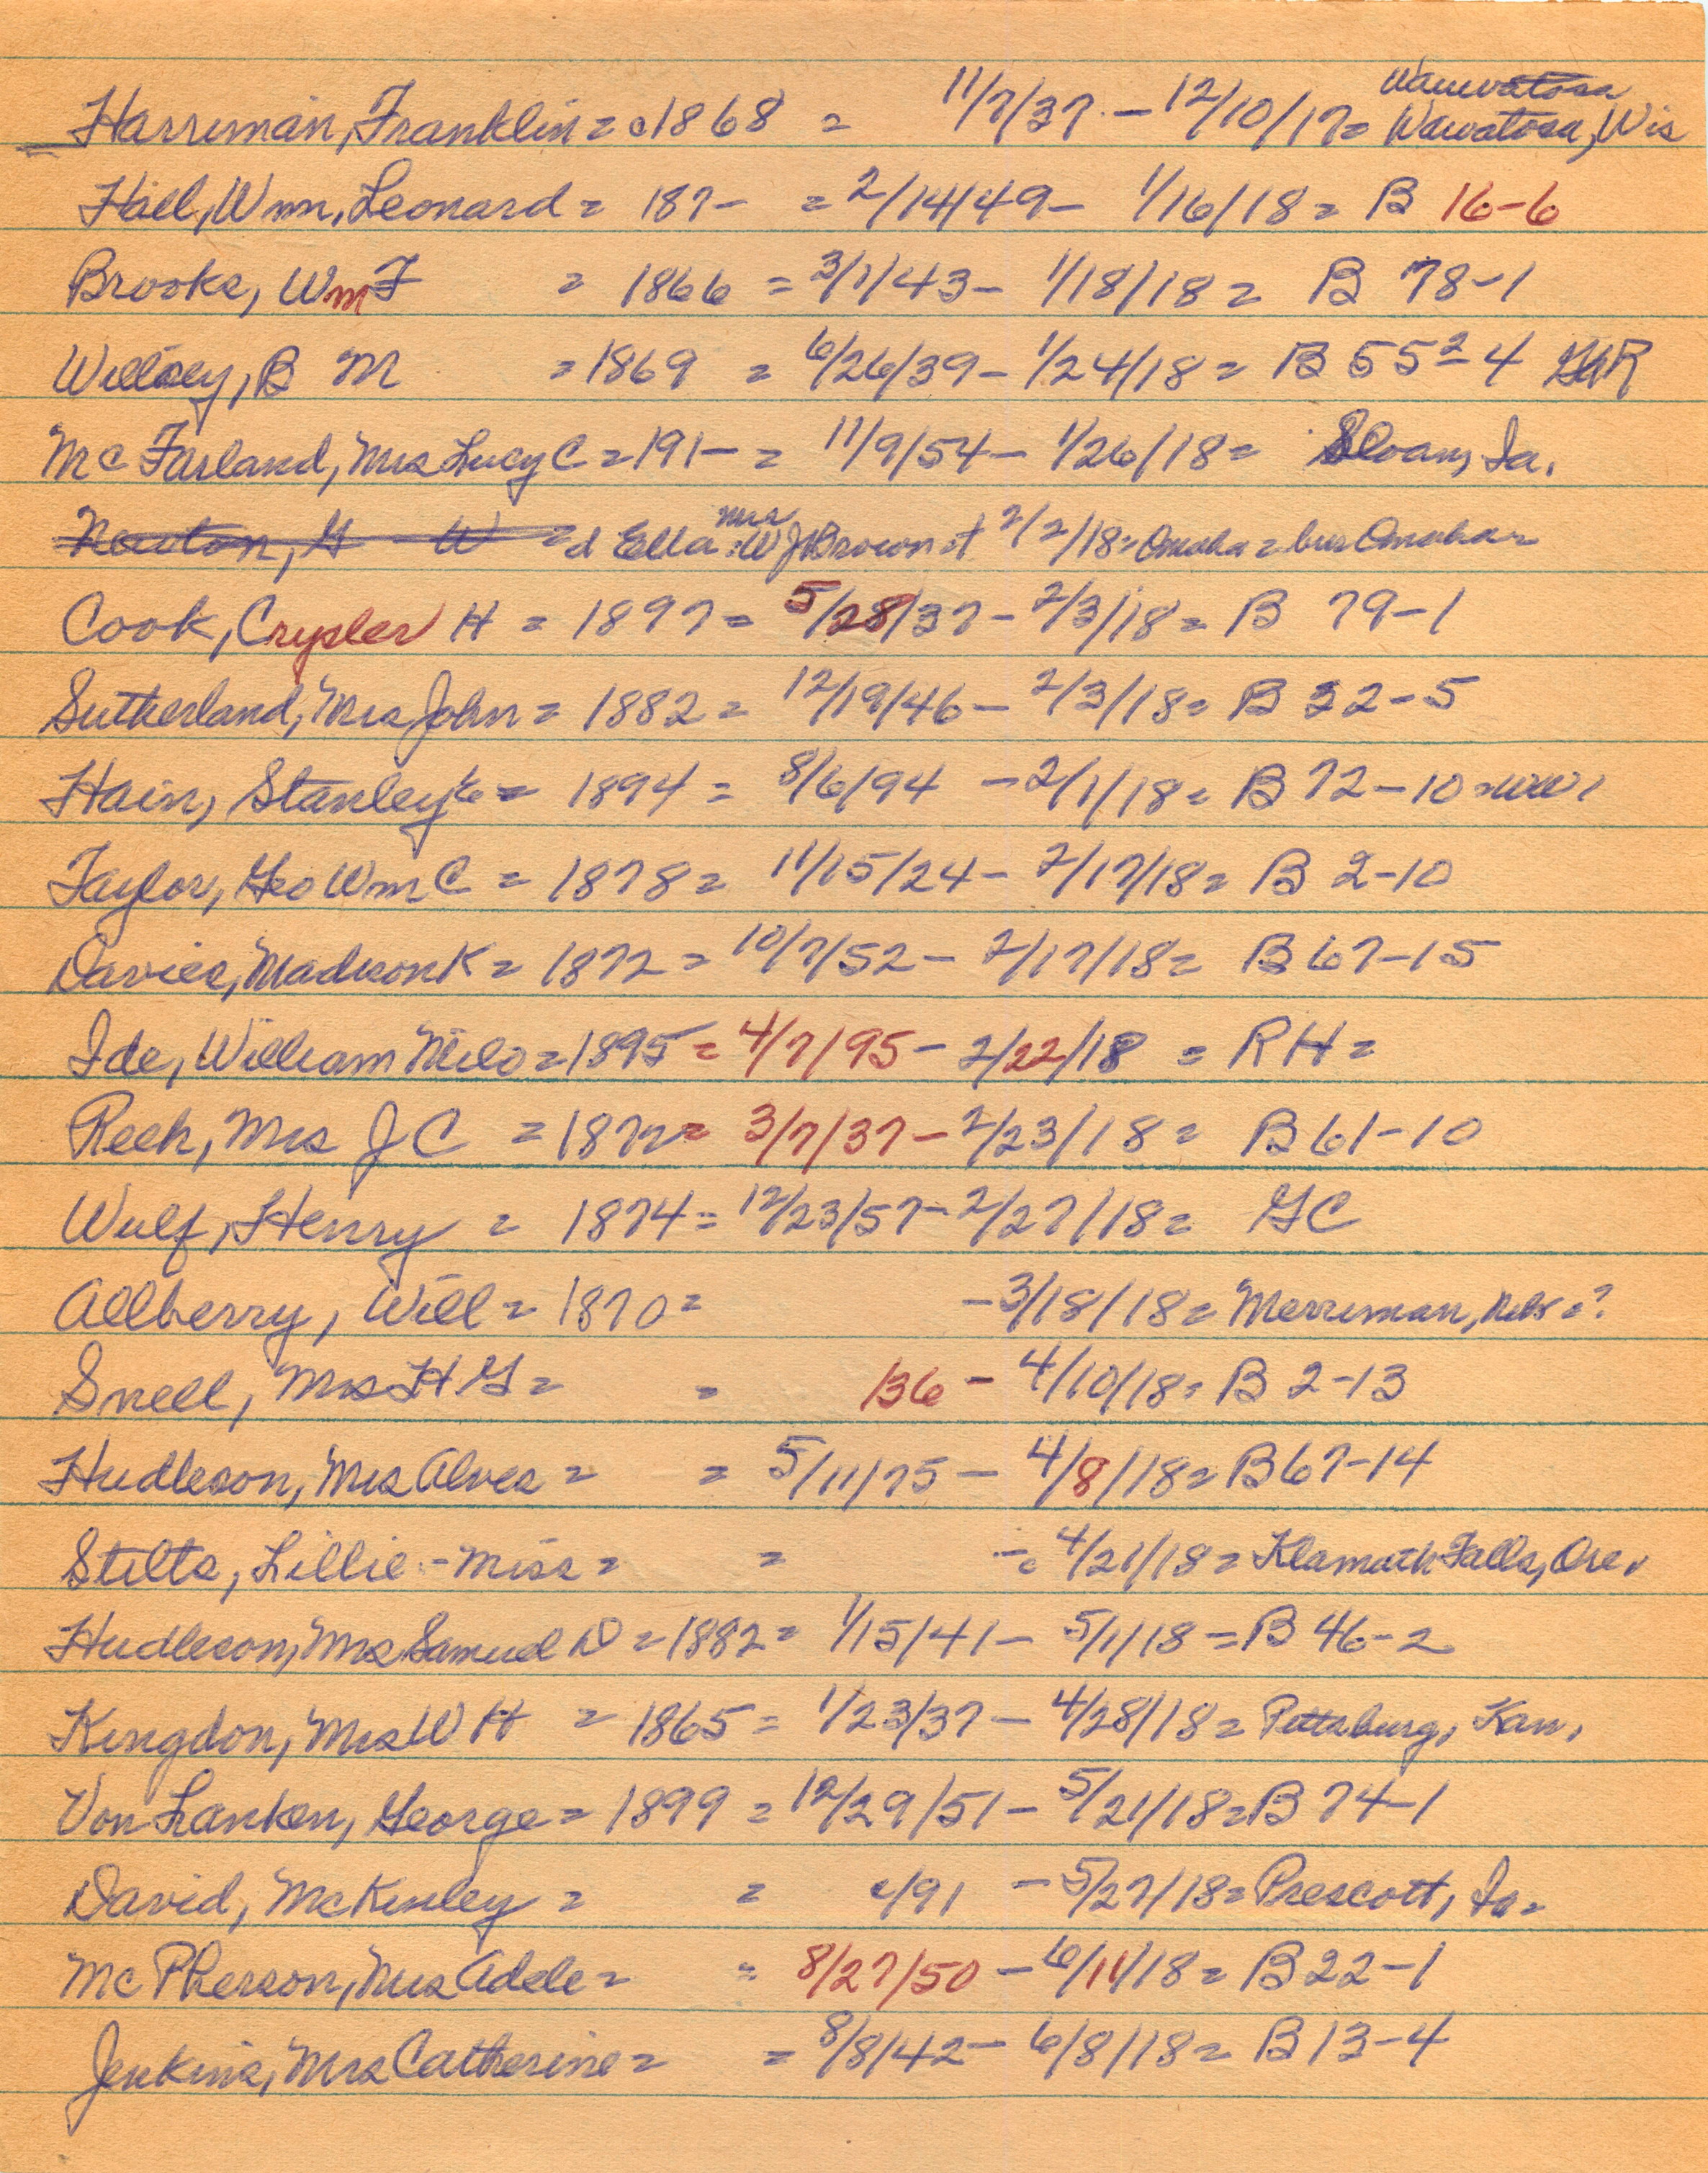 Wauwatosa
Harriman, Franklin = c1868 = 11/7/37 - 12/10/17 = Wawatosa, Wis
Hall, Wm, Leonard = 187- = 2/14/49 - 1/16/18 = B 16-6
Brooks, Wm F = 1866 = 3/1/43 - 1/18/18 = B 78-1
Willsey, B M = 1869 = 6/26/39 - 1/24/18 = B 55²-4 GAR
McFarland, Mrs Lucy C = 191- = 11/9/54 - 1/26/18 = Sloan, Ia.
Newton, G W = d Ella Mrs W J Brown d 2/2/18 = Omaha = bur Omaha =
Cook, Crysler H = 1897 = 5/28/37 - 2/3/18 = B 79-1
Sutherland, Mrs John = 1882 = 12/19/46 - 2/3/18 = B 32-5
Hain, Stanley = 1894 = 8/6/94 - 2/1/18 = B 72-10 = WW1
Taylor, Geo Wm C = 1878 = 11/15/24 - 2/17/18 = B 2-10
Davies, Madison K = 1872 = 10/7/52 - 2/17/18 = B 67-15
Ide, William Milo = 1895 = 4/7/95 - 2/22/18 = RH =
Reek, Mrs J C = 1872 = 3/7/37 - 2/23/18 = B 61-10
Wulf, Henry = 1874 = 12/23/57 - 2/27/18 = GC
Allberry, Will = 1870 = - 3/18/18 = Merriman, Nebr = ?
Snell, Mrs H G = = /36 - 4/10/18 = B 2-13
Hudleson, Mrs Alves = = 5/11/75 - 4/8/18 = B 67-14
Stilts, Lillie - Miss = = - = 4/21/18 = Klamath Falls, Ore.
Hudleson, Mrs Samuel D = 1882 = 1/15/41 - 5/1/18 = B 46-2
Kingdon, Mrs W H = 1865 = 1/23/37 - 4/28/18 = Pittsburg, Kan.
Von Lanken, George = 1899 = 12/29/51 - 5/21/18 = B 74-1
David, McKinley = = c/91 - 5/27/18 = Prescott, Ia =
McPherson, Mrs Adele = = 8/27/50 - 6/11/18 = B 22-1
Jenkins, Mrs Catherine = = 8/8/42 - 6/8/18 = B 13-4